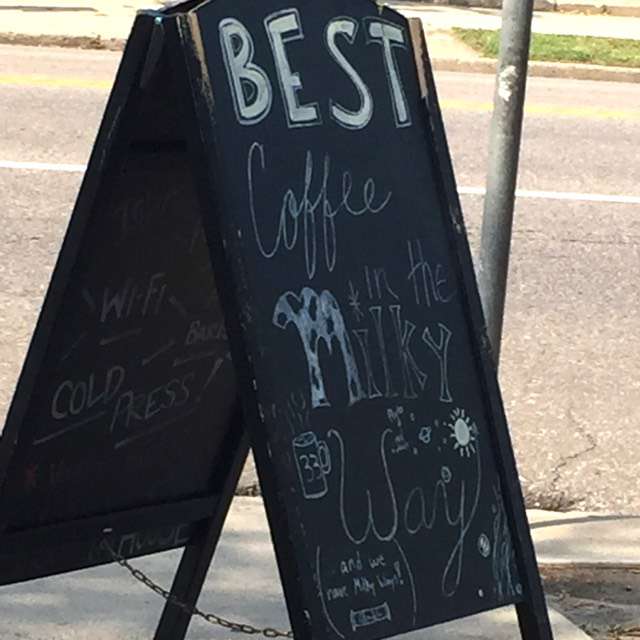 BEST
Coffee
in the
MilKY
33
Way
(and we
have Milky Ways!!)
Wi-Fi
COLD
PRESS!